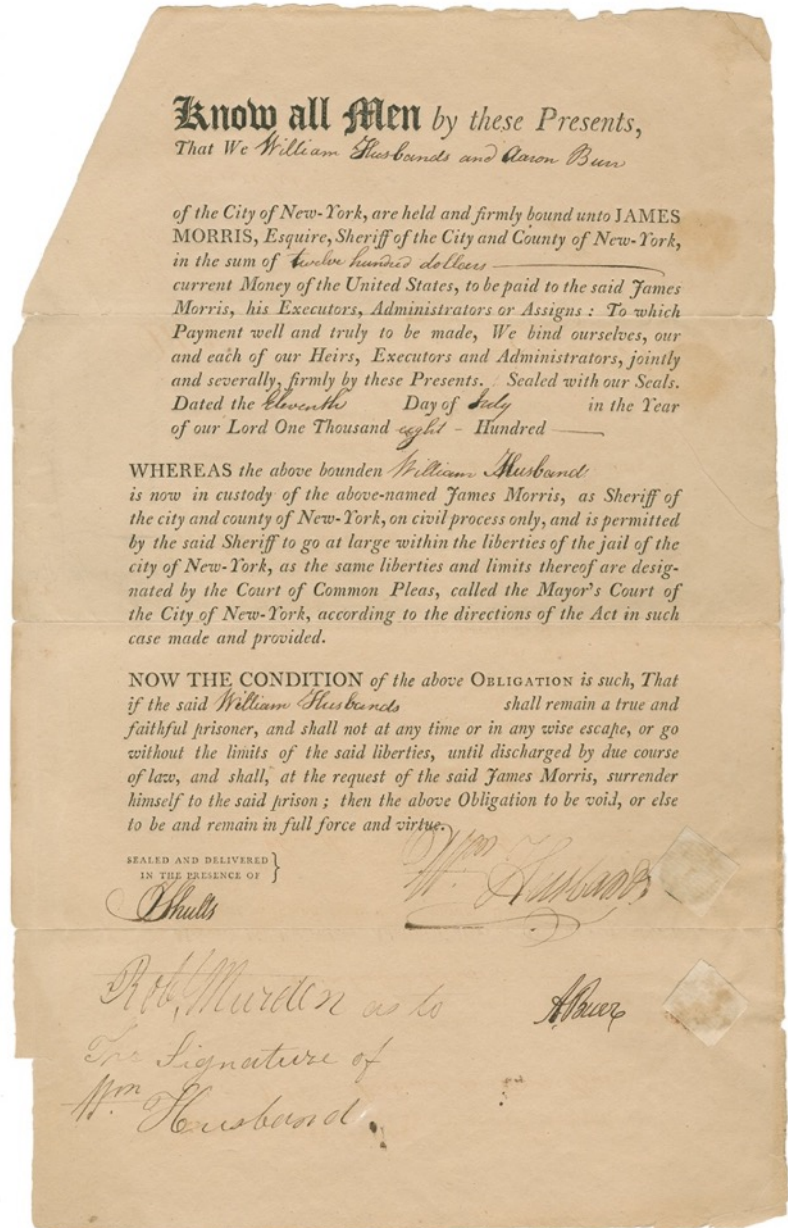 Know all Men by these Presents,
That We William Husbands and Aaron Burr
of the City of New-York, are held and firmly bound unto JAMES
MORRIS, Esquire, Sheriff of the City and County of New-York,
in the sum of twelve hundred dollars
current Money of the United States, to be paid to the said James
Morris, his Executors, Administrators or Assigns : To which
Payment well and truly to be made, We bind ourselves, our
and each of our Heirs, Executors and Administrators, jointly
and severally, firmly by these Presents. Sealed with our Seals.
Dated the Eleventh Day of July in the Year
of our Lord One Thousand eight - Hundred
WHEREAS the above bounden William Husbands
is now in custody of the above-named James Morris, as Sheriff of
the city and county of New-York, on civil process only, and is permitted
by the said Sheriff to go at large within the liberties of the jail of the
city of New-York, as the same liberties and limits thereof are desig-
nated by the Court of Common Pleas, called the Mayor's Court of
the City of New-York, according to the directions of the Act in such
case made and provided.
NOW THE CONDITION of the above OBLIGATION is such, That
if the said William Husbands shall remain a true and
faithful prisoner, and shall not at any time or in any wise escape, or go
without the limits of the said liberties, until discharged by due course
of law, and shall, at the request of the said James Morris, surrender
himself to the said prison ; then the above Obligation to be void, or else
to be and remain in full force and virtue.
SEALED AND DELIVERED }
IN THE PRESENCE OF
Wm Husbands
Robt Murden as to
A Burr
The Signature of
Wm Husband